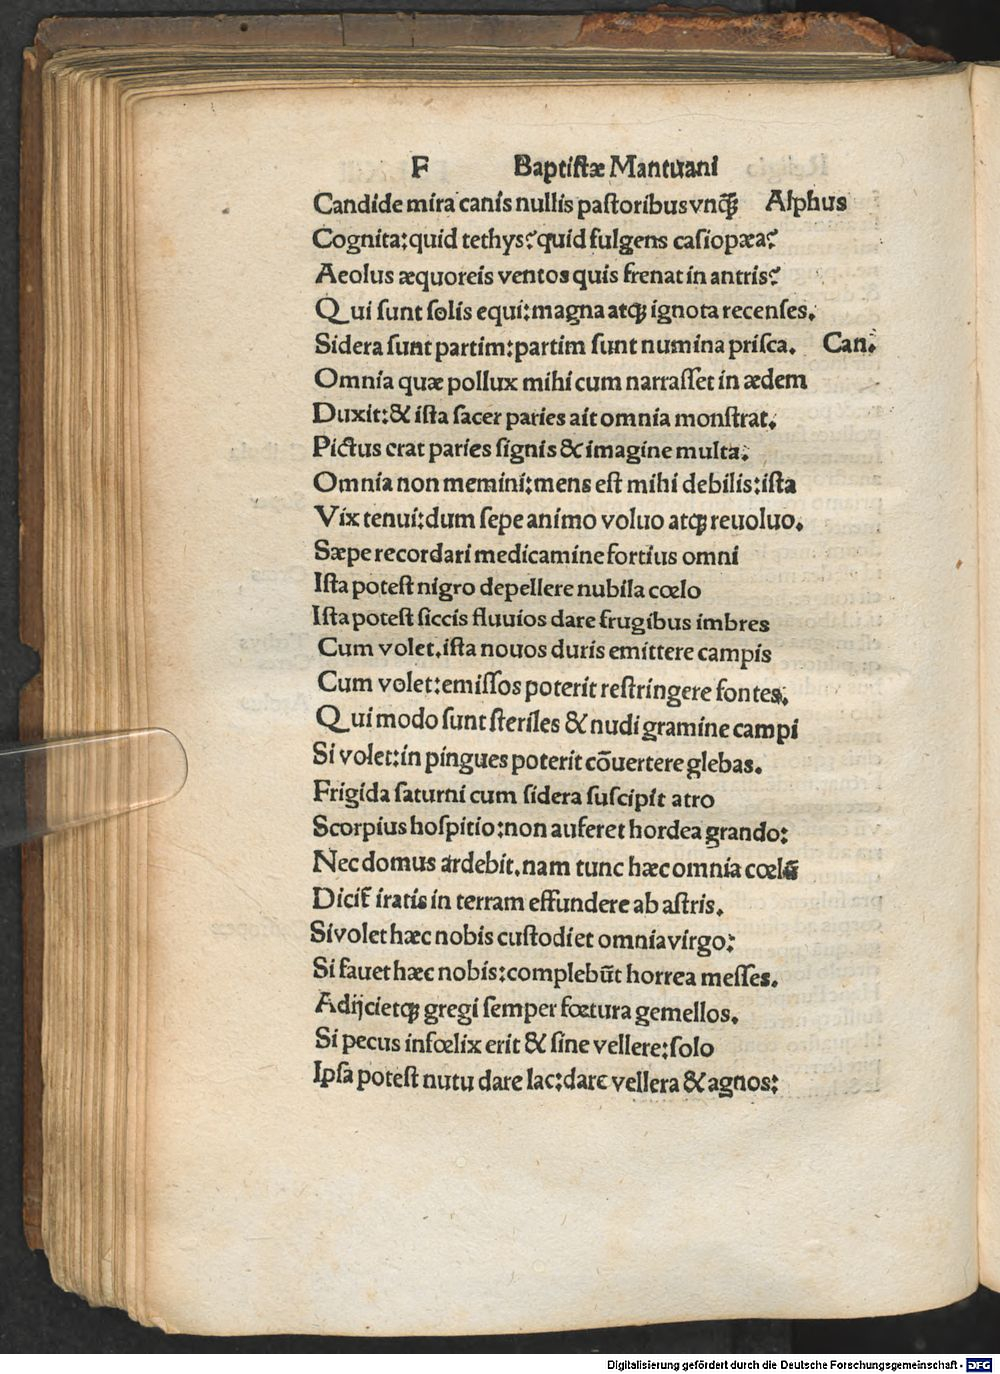 F Baptistæ Mantuani
Candide mira canis nullis pastoribus vnq̃ꝫ Alphus
Cognita: quid tethys? quid fulgens casiopæa?
Aeolus æquoreis ventos quis frenat in antris?
Qui sunt solis equi: magna atqꝫ ignota recenses.
Sidera sunt partim: partim sunt numina prisca. Can.
Omnia quæ pollux mihi cum narrasset in ædem
Duxit: & ista sacer paries ait omnia monstrat.
Pictus erat paries signis & imagine multa.
Omnia non memini: mens est mihi debilis: ista
Vix tenui: dum sepe animo voluo atqꝫ reuoluo.
Sæpe recordari medicamine fortius omni
Ista potest nigro depellere nubila cœlo
Ista potest siccis fluuios dare frugibus imbres
Cum volet. ista nouos duris emittere campis
Cum volet: emissos poterit restringere fontes.
Qui modo sunt steriles & nudi gramine campi
Si volet: in pingues poterit cõuertere glebas.
Frigida saturni cum sidera suscipit atro
Scorpius hospitio: non auferet hordea grando:
Nec domus ardebit. nam tunc hæc omnia cœlũ
Dicit̃ iratis in terram effundere ab astris.
Si volet hæc nobis custodiet omnia virgo:
Si fauet hæc nobis: complebũt horrea messes.
Adijcietqꝫ gregi semper fœtura gemellos.
Si pecus infœlix erit & sine vellere: solo
Ipsa potest nutu dare lac: dare vellera & agnos:
Digitalisierung gefördert durch die Deutsche Forschungsgemeinschaft - DFG